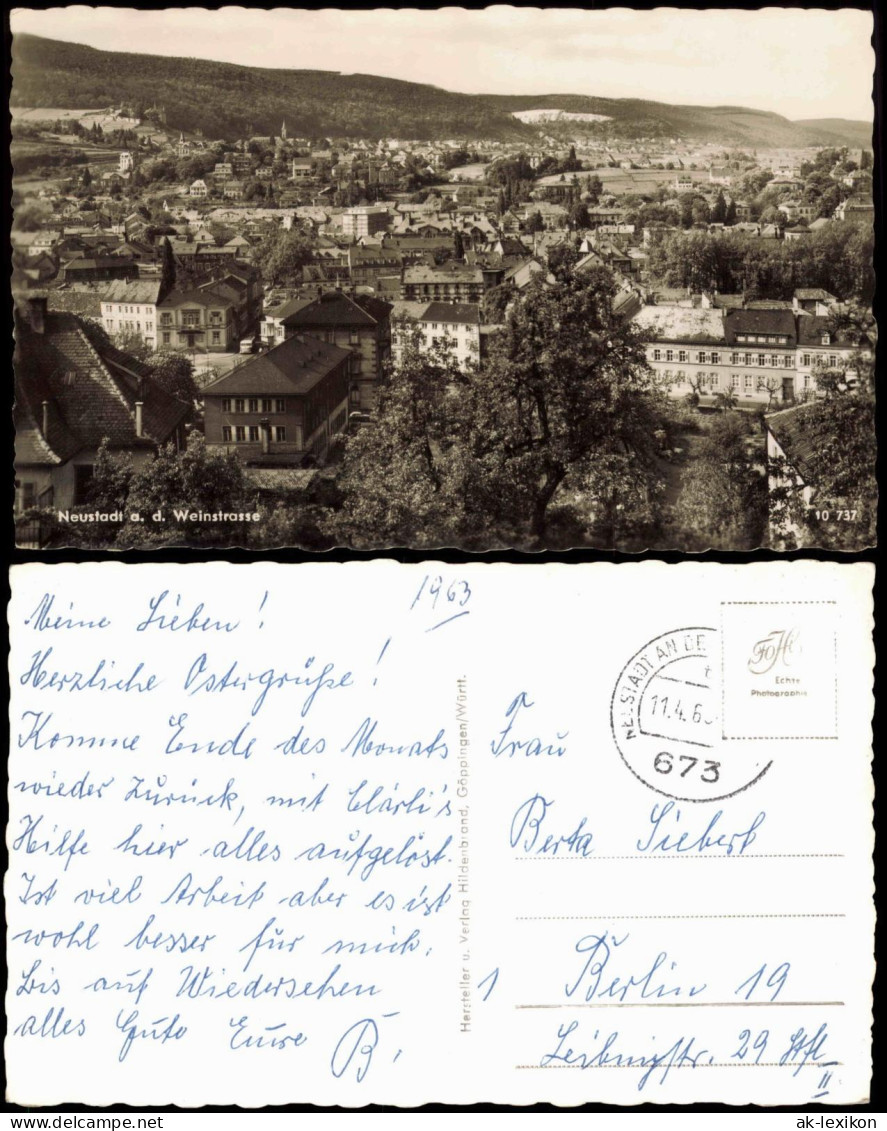 Neustadt a. d. Weinstrasse
10 737
1963
Meine Lieben!
Herzliche Ostergrüße!
Komme Ende des Monats
wieder zurück, mit Clärli's
Hilfe hier alles aufgelöst.
Ist viel Arbeit aber es ist
wohl besser für mich.
Bis auf Wiedersehen
alles Gute Eure
B.
Hersteller u. Verlag Hildenbrand, Göppingen/Württ.
NEUSTADT AN DE
t
11.4.63
673
Echte
Photographie
Frau
Berta Siebert
1 Berlin 19
Leibnizstr. 29 Stfl
II
ak-lexikon